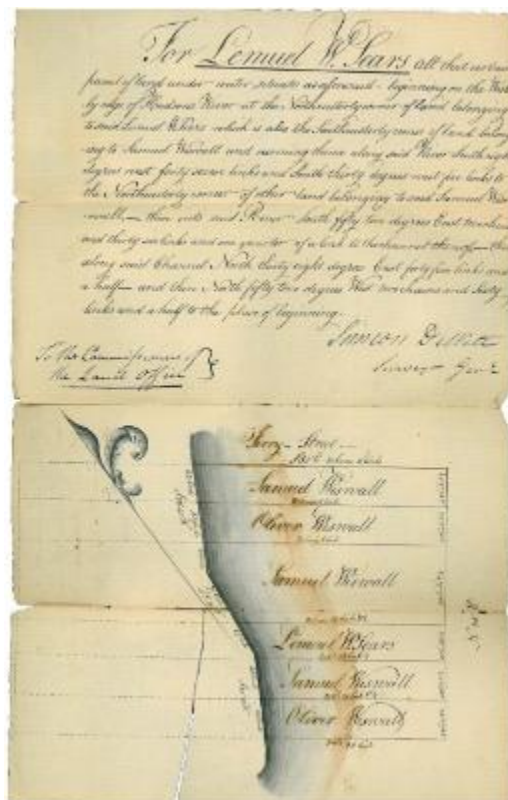 For Lemuel W. Sears all that certain
parcel of land under water situate as aforesaid beginning on the West
by edge of Hudsons River at the Northeasterly corner of land belonging
to said Lemuel W Sears which is also the Southeasterly corner of land belong
ing to Samuel Wiswall and running thence along said River South eight
degrees west forty seven links and South thirty degrees west five links to
the Northeasterly corner of other land belonging to said Samuel Wis
wall, then into said River South fifty two degrees East two chains
and thirty six links and one quarter of a link to the channel thereof
along said Channel North thirty eight degrees East forty five links and
a half and then North fifty two degrees West two chains and sixty
links and a half to the place of beginning.
Simeon DeWitt
Surveyor Genl
To the Commissioners of
the Land Office
Ferry Street
Samuel Wiswall
Oliver Wiswall
Samuel Wiswall
Lemuel W. Sears
Samuel Wiswall
Oliver Wiswall